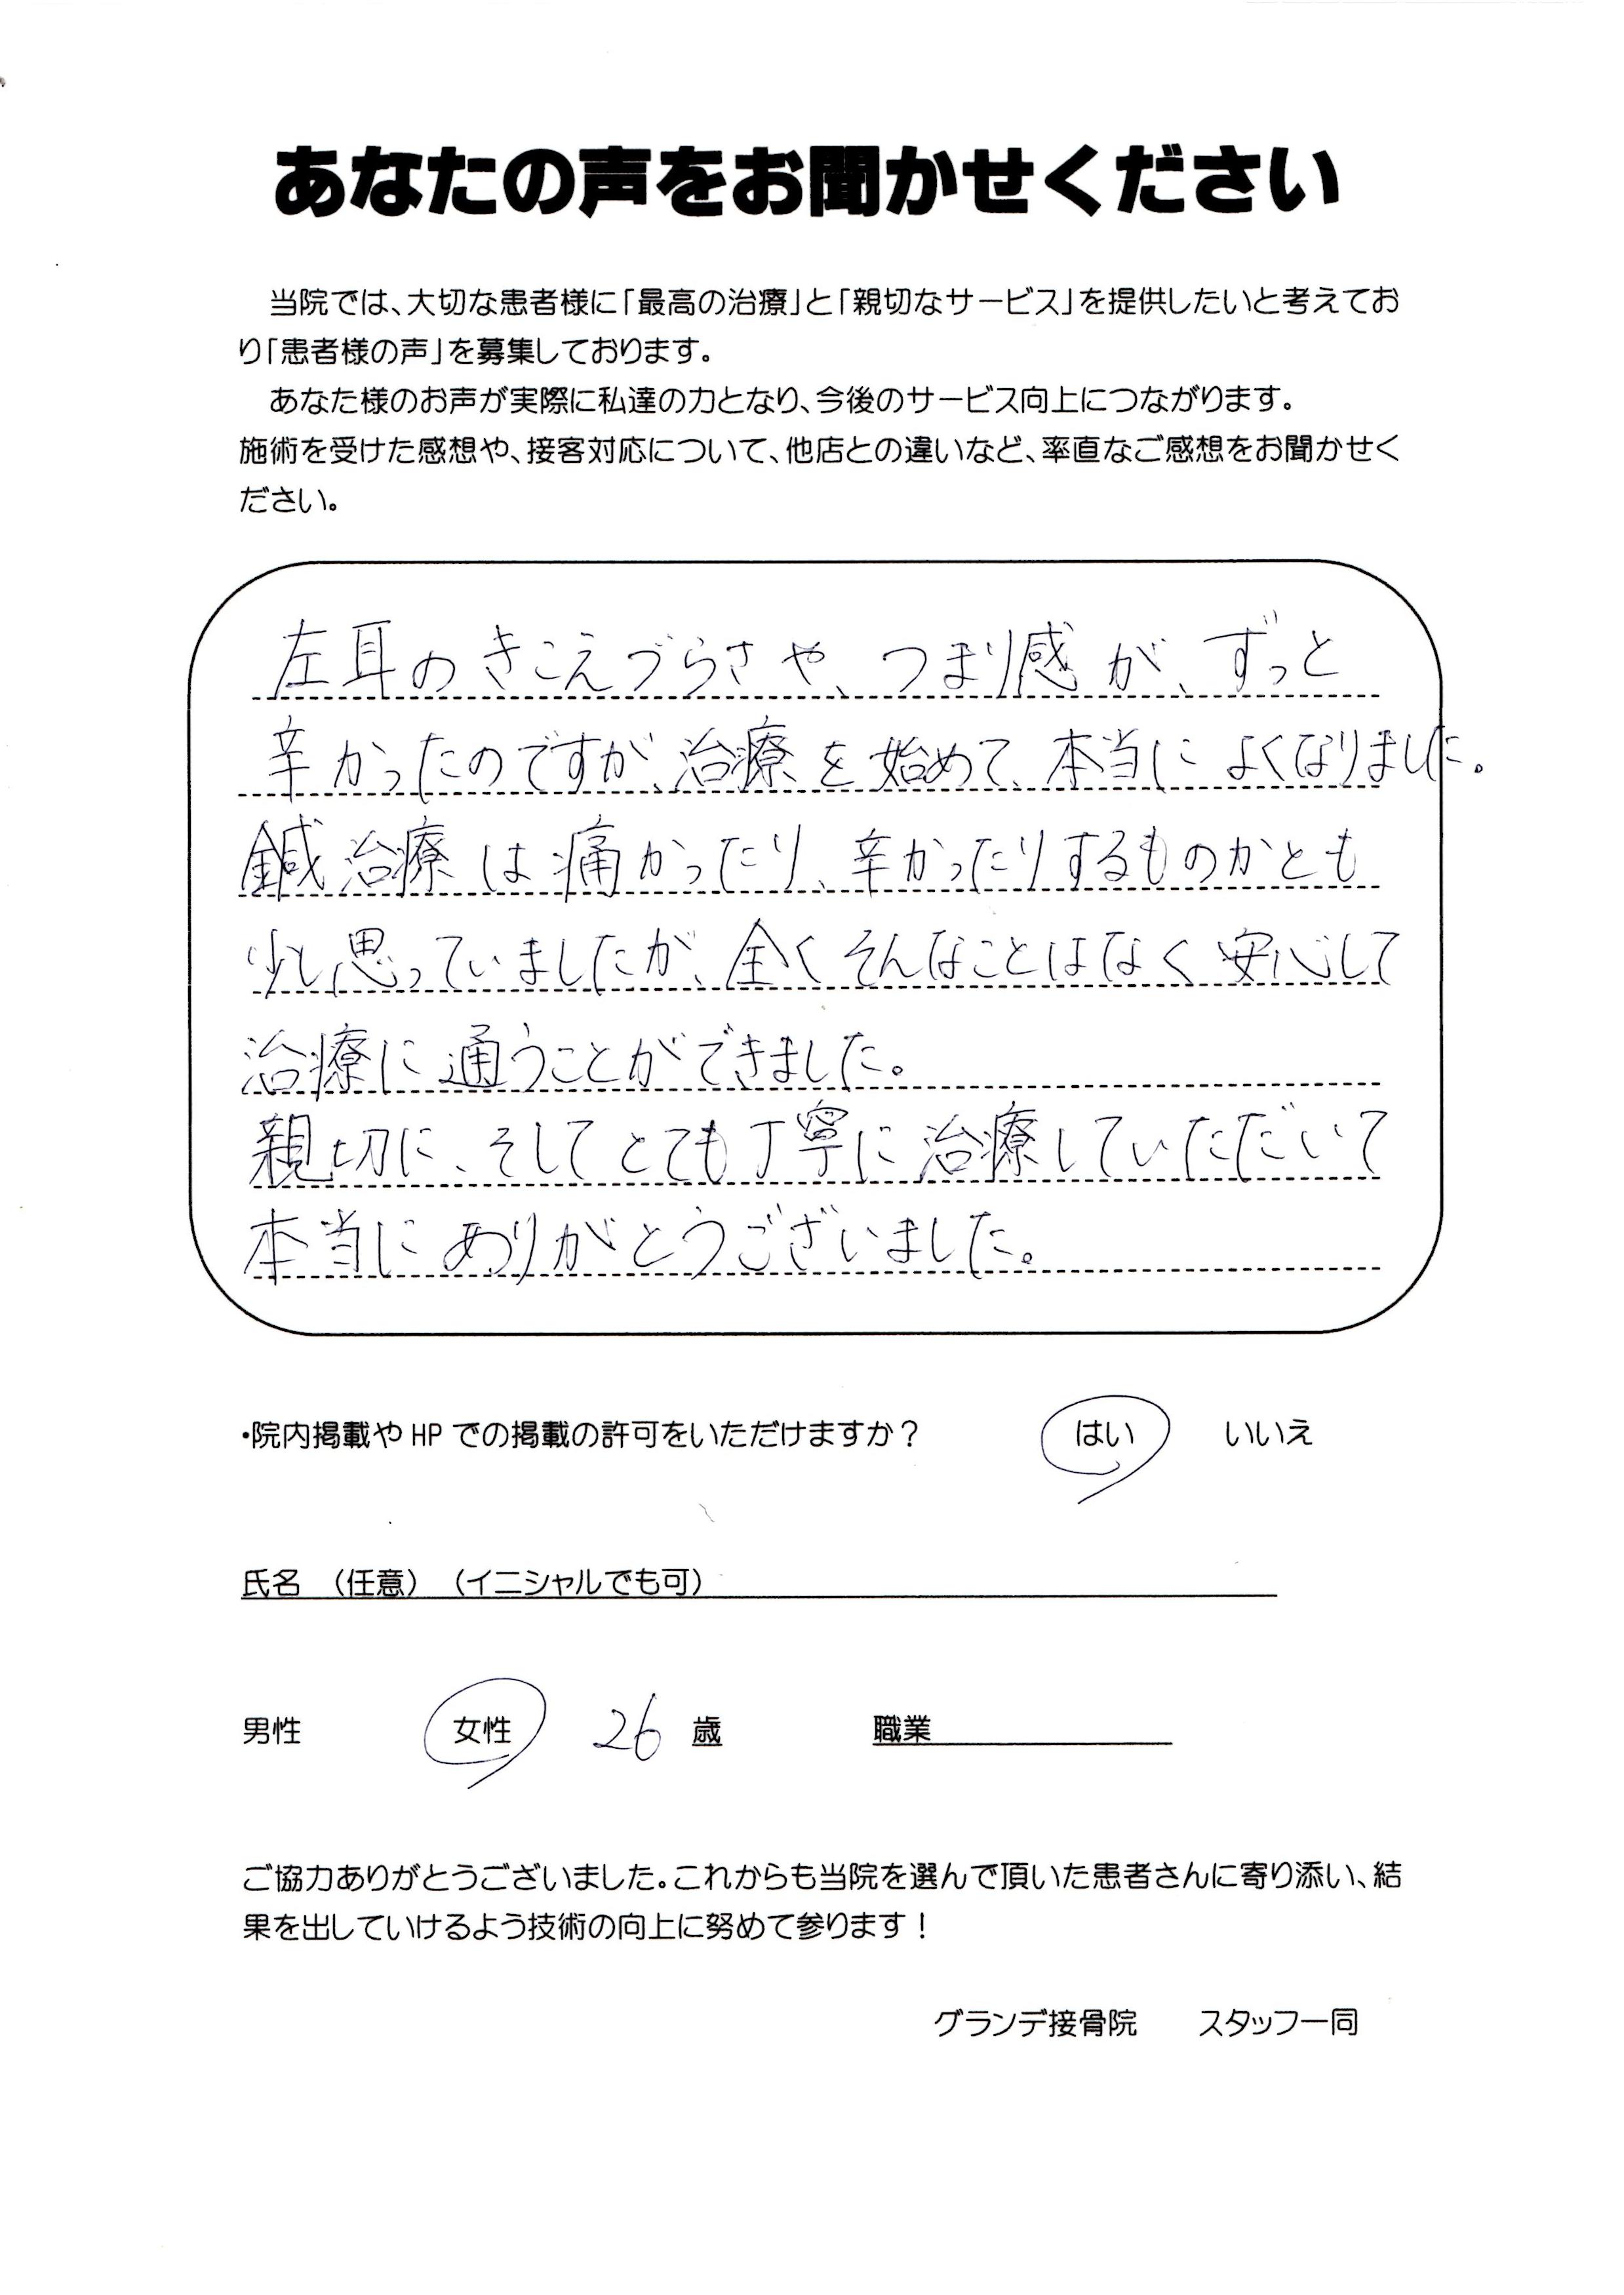 あなたの声をお聞かせください
当院では、大切な患者様に「最高の治療」と「親切なサービス」を提供したいと考えてお
り「患者様の声」を募集しております。
あなた様のお声が実際に私達の力となり、今後のサービス向上につながります。
施術を受けた感想や、接客対応について、他店との違いなど、率直なご感想をお聞かせく
ださい。
左耳のきこえづらさや、つまり感が、ずっと
辛かったのですが、治療を始めて、本当によくなりました。
鍼治療は痛かったり、辛かったりするものかとも
少し思っていましたが、全くそんなことはなく安心して
治療に通うことができました。
親切に、そしてとても丁寧に治療していただいて
本当にありがとうございました。
・院内掲載やHPでの掲載の許可をいただけますか？ はい いいえ
氏名 （任意）（イニシャルでも可）
男性 女性 26 歳 職業
ご協力ありがとうございました。これからも当院を選んで頂いた患者さんに寄り添い、結
果を出していけるよう技術の向上に努めて参ります！
グランデ接骨院 スタッフ一同